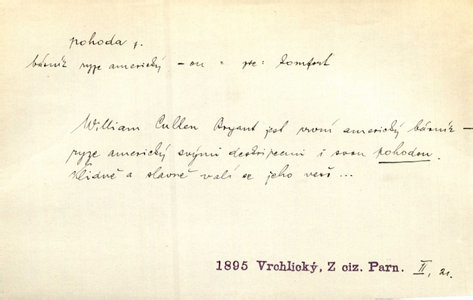 pohoda f.
básník ryze americký – on = pse: komfort
William Cullen Bryant jest první americký básník –
ryze americký svými deskripcemi i svou pohodou.
Klidně a slavně valí se jeho verš ...
1895 Vrchlický, Z ciz. Parn. II, 21.